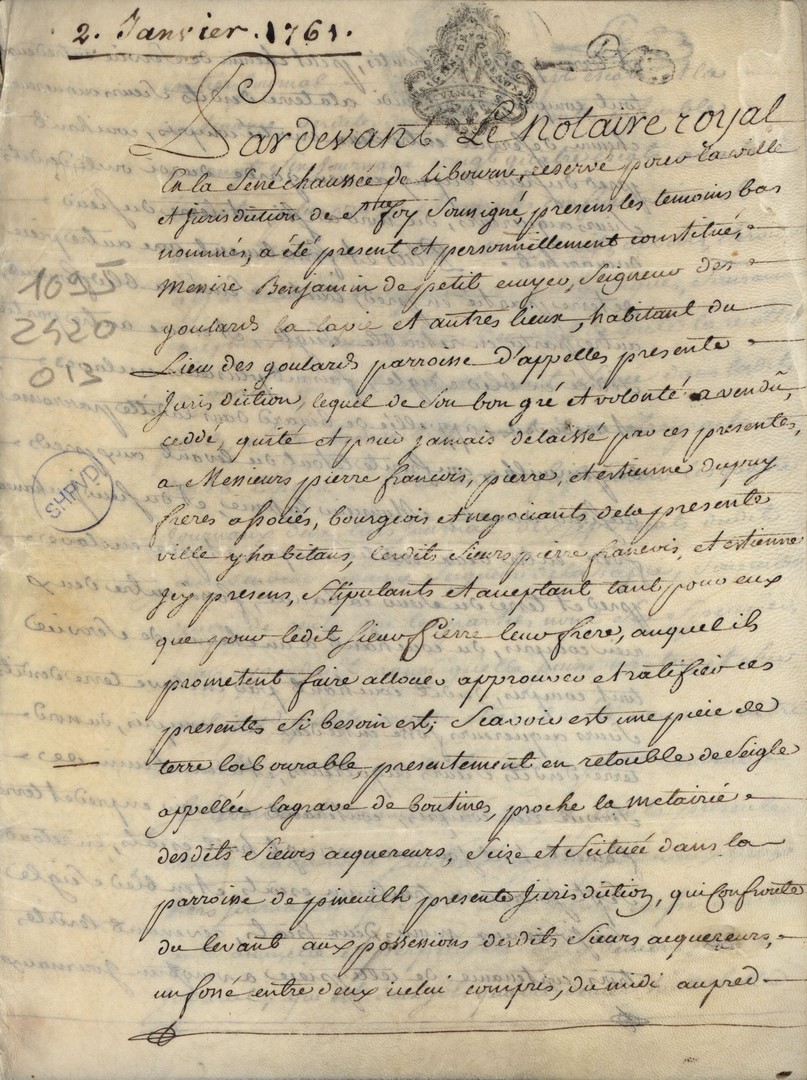 2. Janvier. 1761.
Pardevant Le Notaire royal
En la Senéchaussée de libourne, reservé pour la ville
et Jurisdiction de Ste foy Soussigné, presens les temoins bas
nommés, a été present et personnellement constitué,
Messire Benjamin de petit ecuyer, Seigneur des
goulards la lavie et autres lieux, habitant du
Lieu des goulards parroisse d'appelles presente
Jurisdiction, lequel de Son bon gré et volonté a vendu,
ceddé, quité et pour jamais delaissé par ces presentes,
a Messieurs pierre francois, pierre, et estienne dupuy
freres associés, bourgeois et negociants de la presente
ville y habitans, lesdits Sieurs pierre francois, et estienne
Icy presens, Stipulants et aceptant tant pour eux
que pour ledit Sieur Pierre leur frere, auquel ils
prometent faire allouer approuver et ratifier ces
presentes Si besoin est; Scavoir est une piece de
terre labourable, presentement en retouble de Seigle
appellée lagrave de boutines, proche la metairie
desdits Sieurs acquereurs, Seize et Scituée dans la
parroisse de pineuilh presente Jurisdiction, qui Confronte
du levant aux possessions desdits Sieurs acquereurs,
un fossé entre deux icelui compris, du midi au pred
1095
2420
013
SHPVD